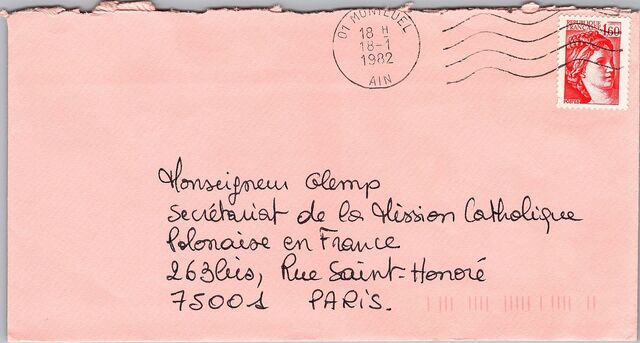 01 MONTLUEL
18 H
18-1
1982
AIN
REPUBLIQUE FRANCAISE
1,60
POSTES
Monseigneur Glemp
Secrétariat de la Mission Catholique
Polonaise en France
263bis, Rue Saint-Honoré
75001 PARIS.